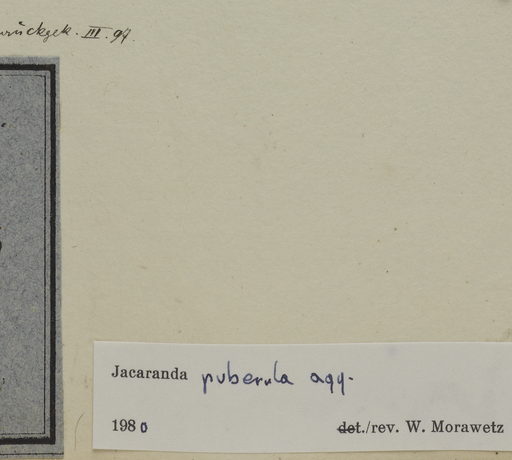 III. 97.
Jacaranda puberula agg.
1980 det./rev. W. Morawetz